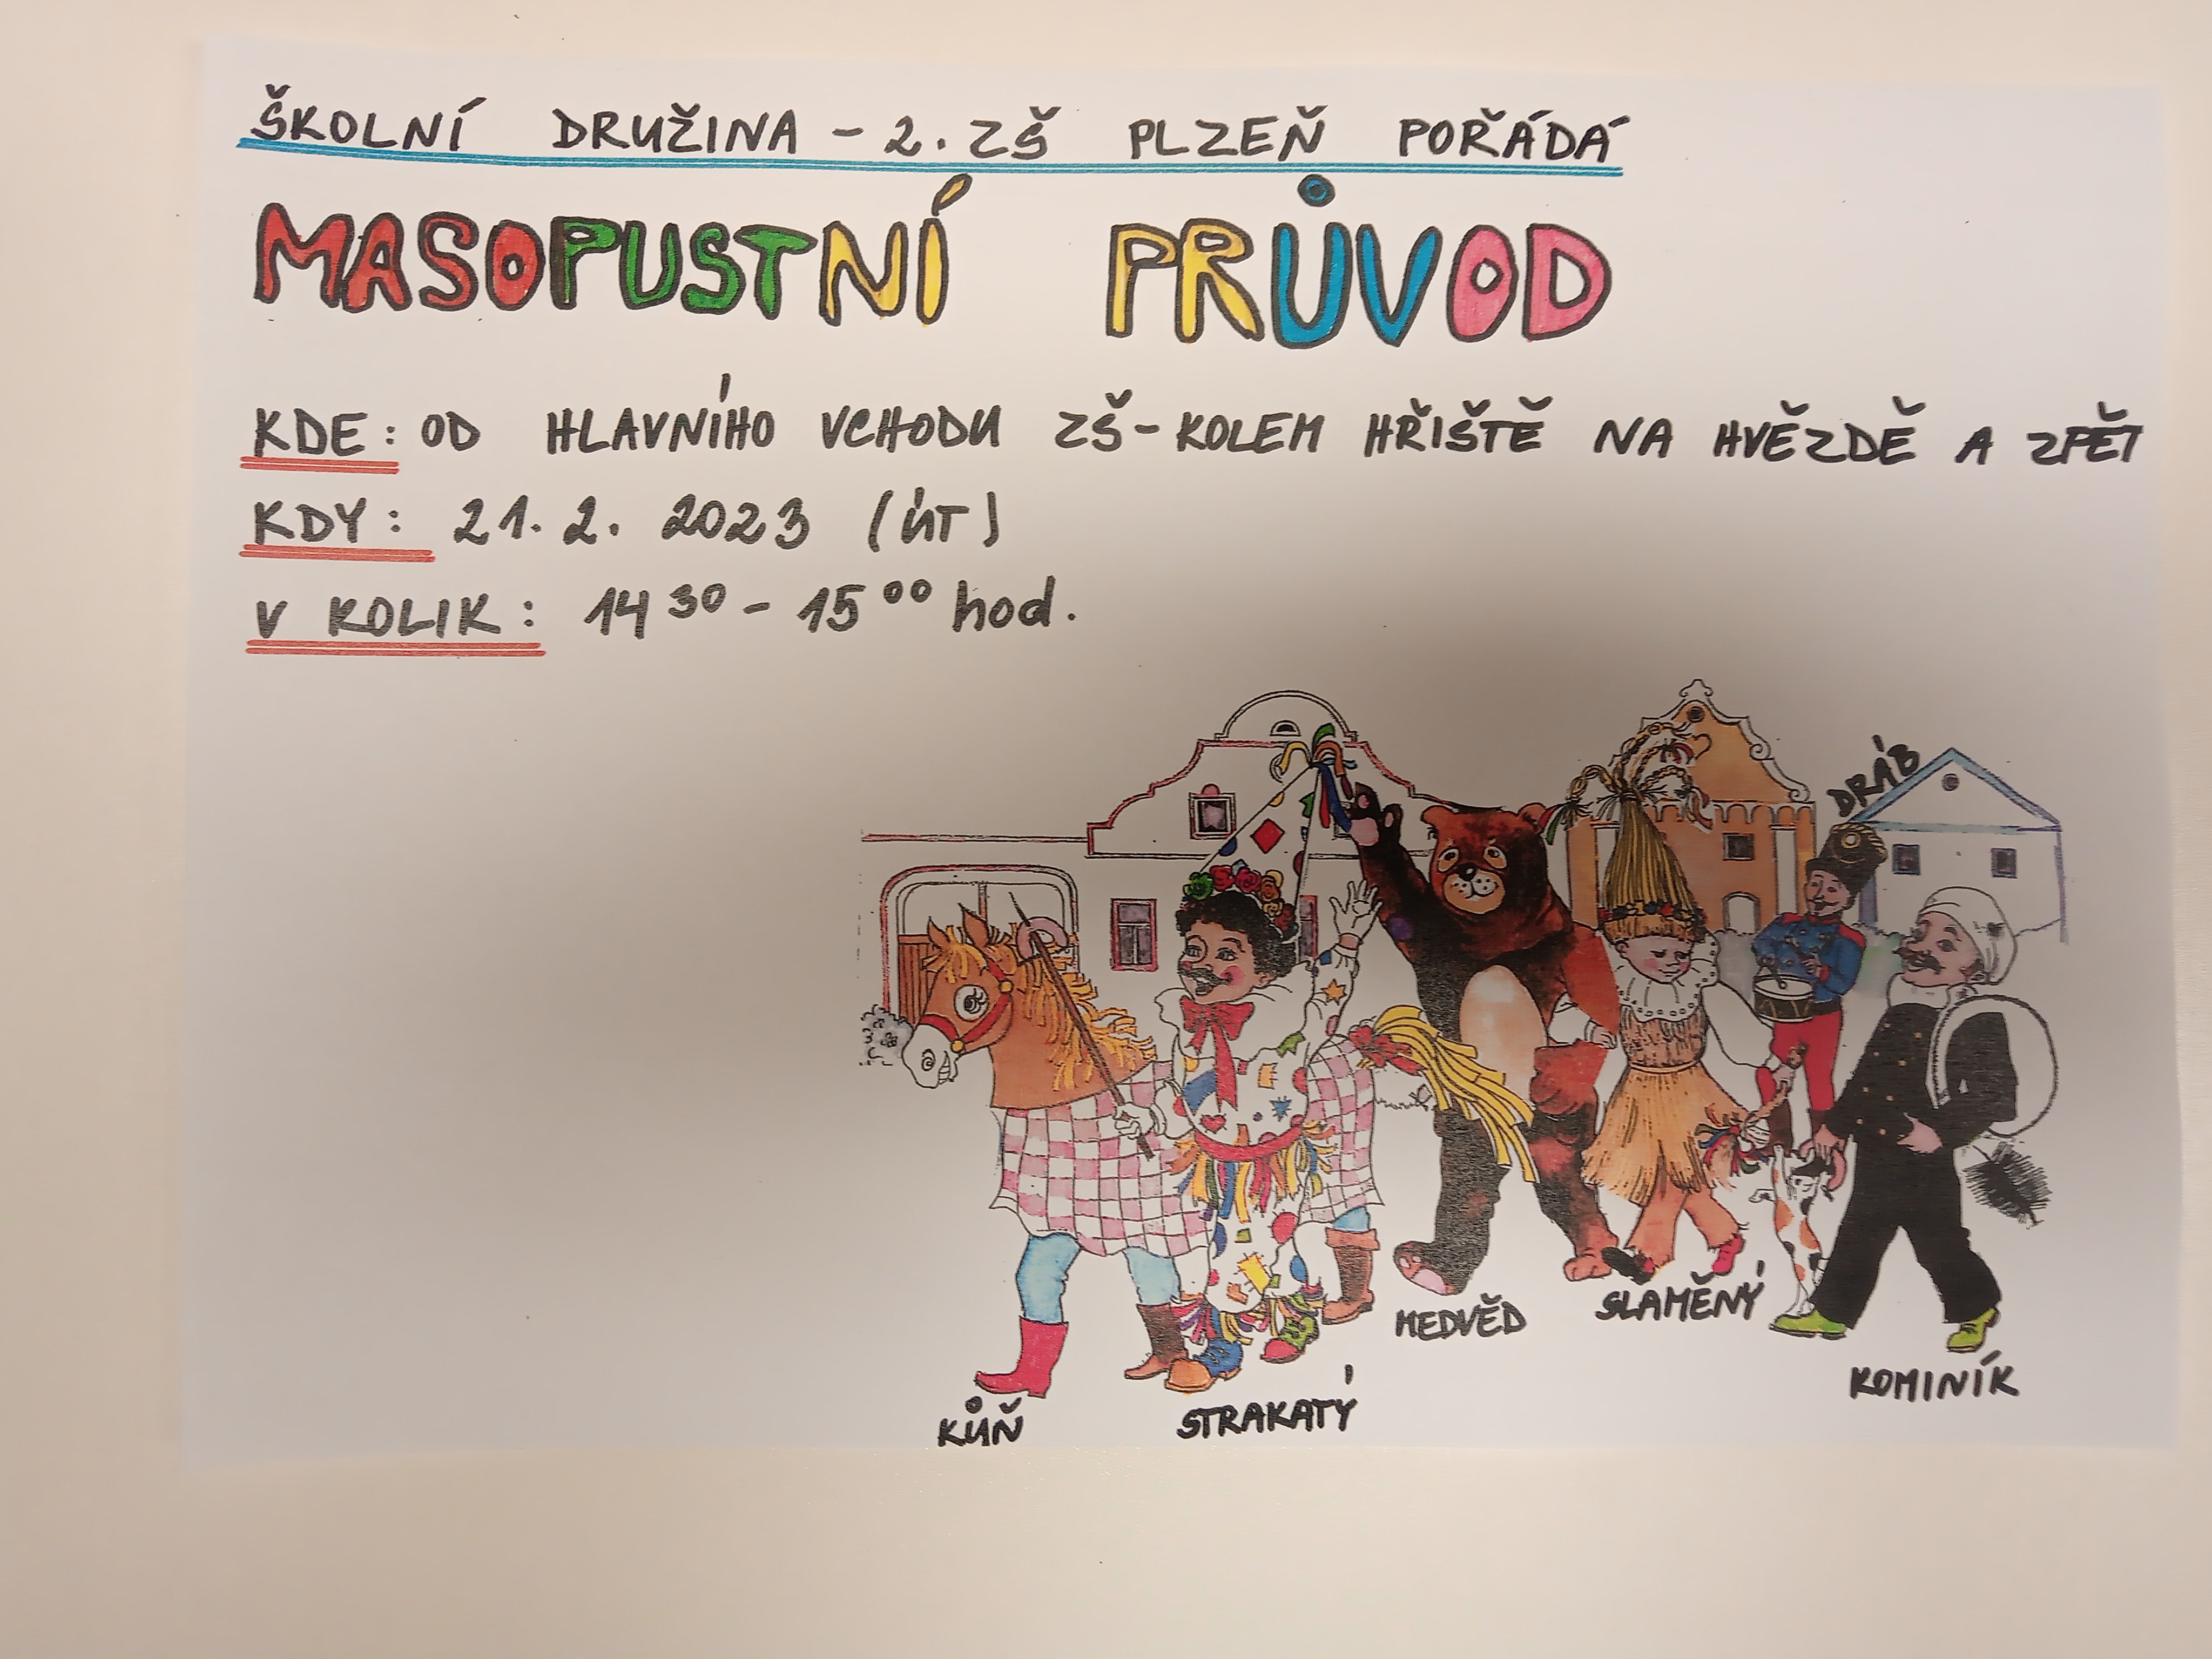 ŠKOLNÍ DRUŽINA - 2. ZŠ PLZEŇ POŘÁDÁ
MASOPUSTNÍ PRŮVOD
KDE: OD HLAVNÍHO VCHODU ZŠ - KOLEM HŘIŠTĚ NA HVĚZDĚ A ZPĚT
KDY: 21. 2. 2023 (ÚT)
V KOLIK: 14 30 - 15 00 hod.
DRÁB
MEDVĚD
SLAMĚNÝ
KOMINÍK
KŮŇ
STRAKATÝ